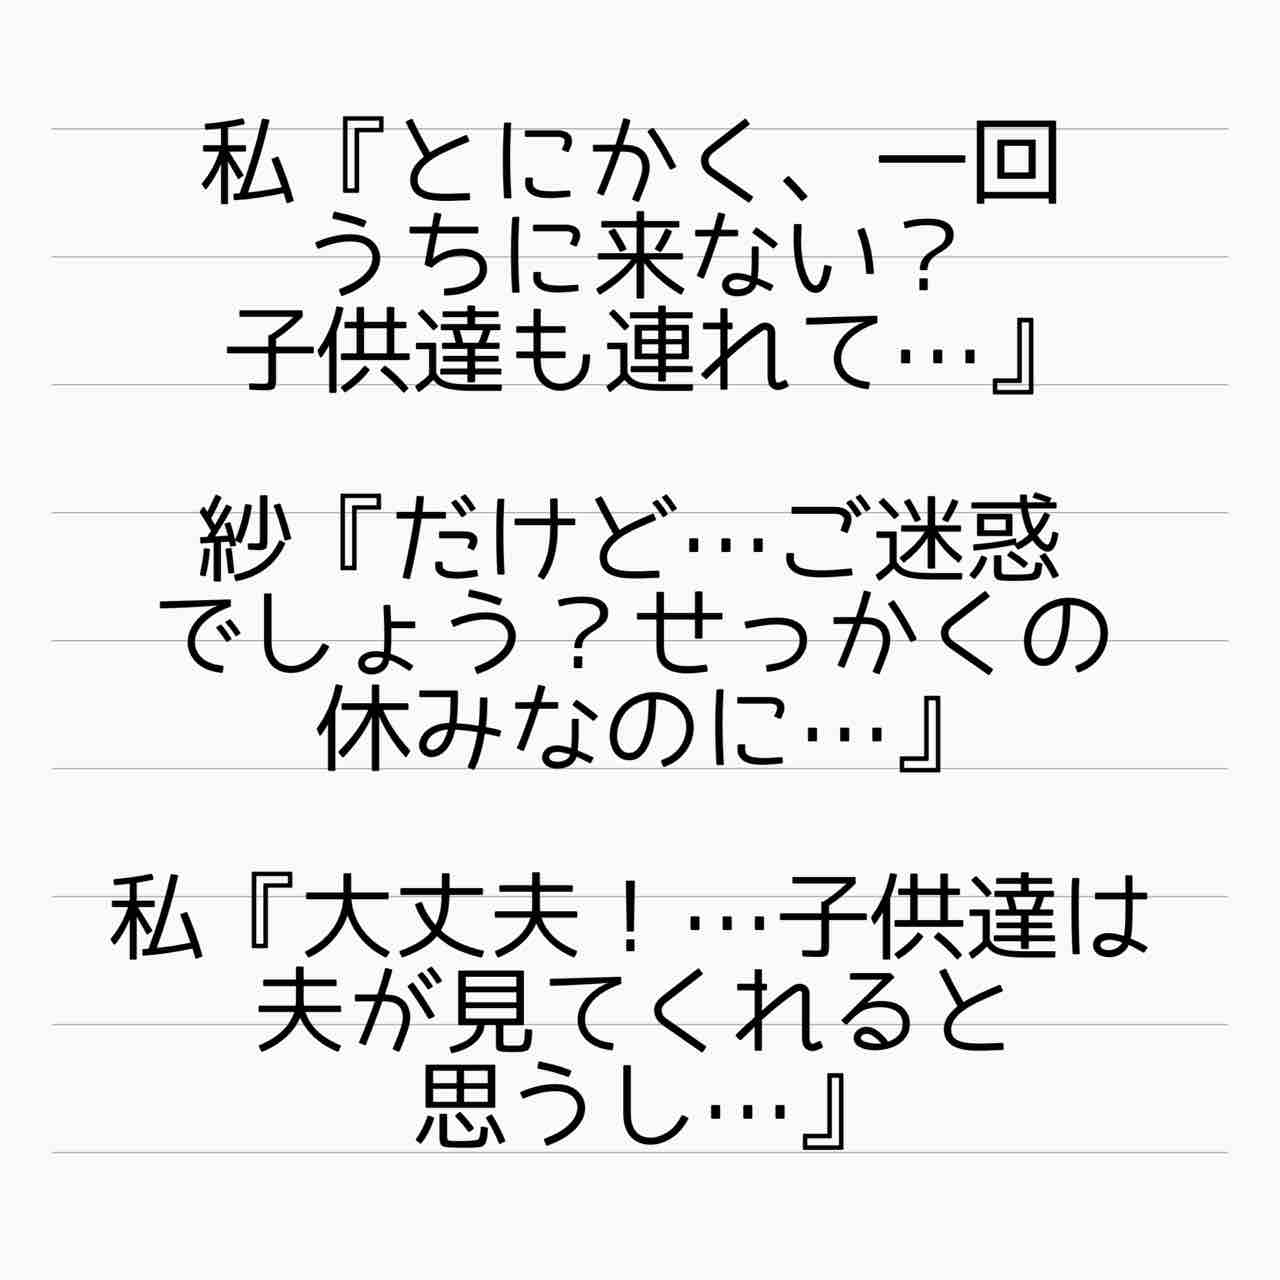 私『とにかく、一回
うちに来ない？
子供達も連れて…』
紗『だけど…ご迷惑
でしょう？せっかくの
休みなのに…』
私『大丈夫！…子供達は
夫が見てくれると
思うし…』